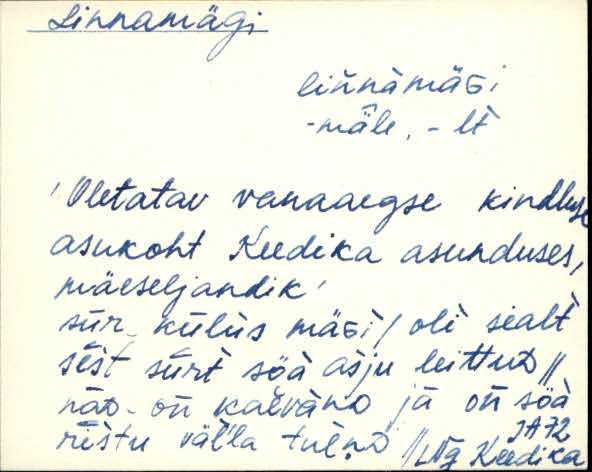 Linnamägi
liǹnàmäɢi
-mäle, -lt
'Oletatav vanaaegse kindluse
asukoht Keedika asunduses,
mäeseljandik'
sūr külüs mäɢi / oli sealt
sēst sūrt sõ̀à asju leittuᴅ //
näᴅ on kaevànᴅ jà on sõ̀à
riistu väl̀la tulnᴅ //
JA72
LNg Keedika